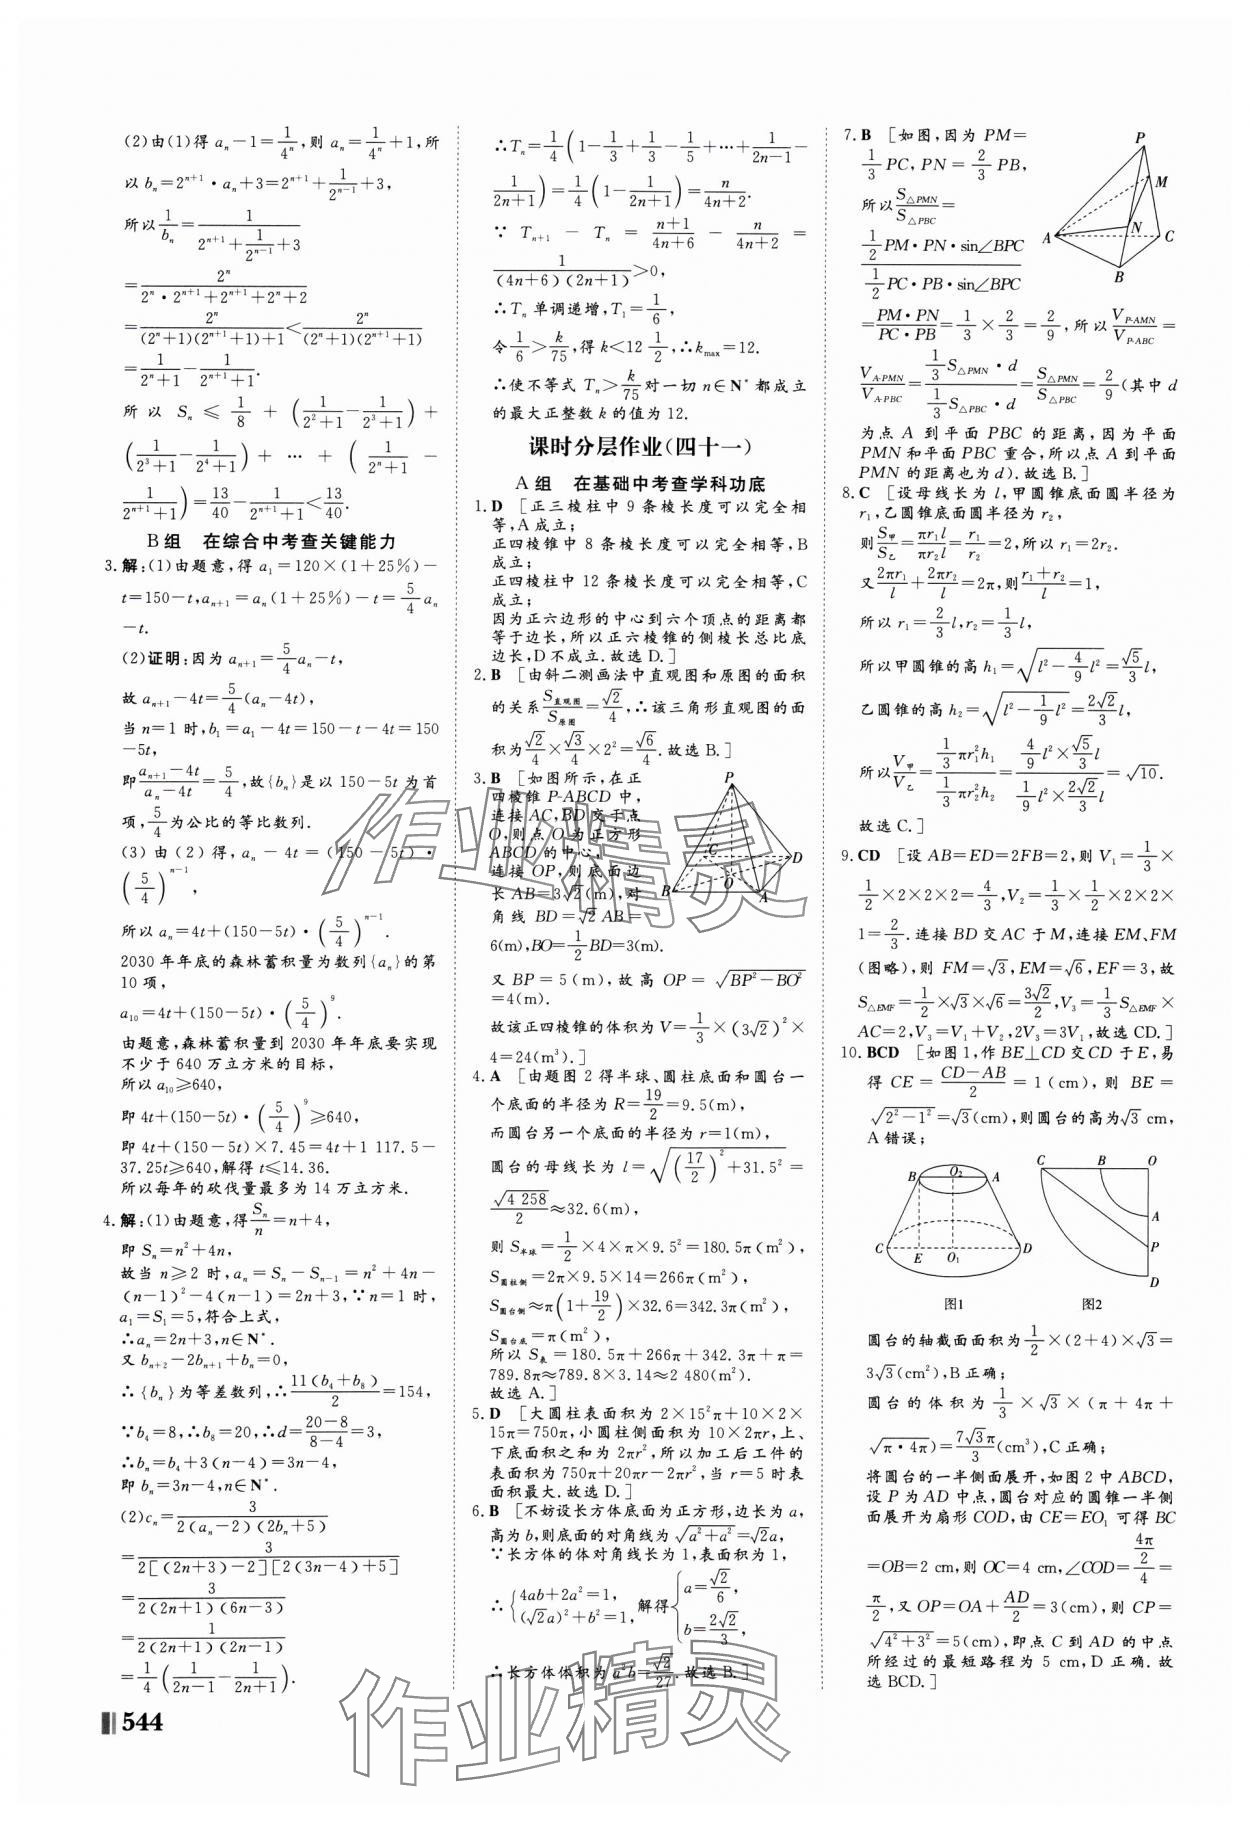 (2)由(1)得 aₙ-1=1/4ⁿ,则 aₙ=1/4ⁿ+1,所
以 bₙ=2ⁿ⁺¹·aₙ+3=2ⁿ⁺¹+1/2ⁿ⁻¹+3,
所以1/bₙ=1/(2ⁿ⁺¹+1/2ⁿ⁻¹+3)
=2ⁿ/(2ⁿ·2ⁿ⁺¹+2ⁿ⁺¹+2ⁿ+2)
=2ⁿ/((2ⁿ+1)(2ⁿ⁺¹+1)+1)<2ⁿ/((2ⁿ+1)(2ⁿ⁺¹+1))
=1/(2ⁿ+1)-1/(2ⁿ⁺¹+1).
所以 Sₙ ≤ 1/8 + (1/(2²+1)-1/(2³+1)) +
(1/(2³+1)-1/(2⁴+1)) + … + (1/(2ⁿ+1)-
1/(2ⁿ⁺¹+1))=13/40-1/(2ⁿ⁺¹+1)<13/40.
B组 在综合中考查关键能力
3.解:(1)由题意,得 a₁=120×(1+25%)-
t=150-t,aₙ₊₁=aₙ(1+25%)-t=5/4aₙ
-t.
(2)证明:因为 aₙ₊₁=5/4aₙ-t,
故 aₙ₊₁-4t=5/4(aₙ-4t),
当 n=1 时,b₁=a₁-4t=150-t-4t=150
-5t,
即(aₙ₊₁-4t)/(aₙ-4t)=5/4,故{bₙ}是以 150-5t 为首
项,5/4为公比的等比数列.
(3)由(2)得,aₙ-4t=(150-5t)·
(5/4)ⁿ⁻¹,
所以 aₙ=4t+(150-5t)·(5/4)ⁿ⁻¹.
2030 年年底的森林蓄积量为数列{aₙ}的第
10 项,
a₁₀=4t+(150-5t)·(5/4)⁹.
由题意,森林蓄积量到 2030 年年底要实现
不少于 640 万立方米的目标,
所以 a₁₀≥640,
即 4t+(150-5t)·(5/4)⁹≥640,
即 4t+(150-5t)×7.45=4t+1 117.5-
37.25t≥640,解得 t≤14.36.
所以每年的砍伐量最多为 14 万立方米.
4.解:(1)由题意,得Sₙ/n=n+4,
即 Sₙ=n²+4n,
故当 n≥2 时,aₙ=Sₙ-Sₙ₋₁=n²+4n-
(n-1)²-4(n-1)=2n+3,∵n=1 时,
a₁=S₁=5,符合上式,
∴aₙ=2n+3,n∈N*.
又 bₙ₊₂-2bₙ₊₁+bₙ=0,
∴{bₙ}为等差数列,∴11(b₄+b₈)/2=154,
∵b₄=8,∴b₈=20,∴d=(20-8)/(8-4)=3,
∴bₙ=b₄+3(n-4)=3n-4,
即 bₙ=3n-4,n∈N*.
(2)cₙ=3/(2(aₙ-2)(2bₙ+5))
=3/(2[(2n+3)-2][2(3n-4)+5])
=3/(2(2n+1)(6n-3))
=1/(2(2n+1)(2n-1))
=1/4(1/(2n-1)-1/(2n+1)).
544
∴Tₙ=1/4(1-1/3+1/3-1/5+…+1/(2n-1)-
1/(2n+1))=1/4(1-1/(2n+1))=n/(4n+2).
∵ Tₙ₊₁ - Tₙ = (n+1)/(4n+6) - n/(4n+2) =
1/((4n+6)(2n+1))>0,
∴Tₙ 单调递增,T₁=1/6,
令1/6>k/75,得 k<12 1/2,∴kmax=12.
∴使不等式 Tₙ>k/75对一切 n∈N* 都成立
的最大正整数 k 的值为 12.
课时分层作业(四十一)
A组 在基础中考查学科功底
1.D [正三棱柱中 9 条棱长度可以完全相
等,A 成立;
正四棱锥中 8 条棱长度可以完全相等,B
成立;
正四棱柱中 12 条棱长度可以完全相等,C
成立;
因为正六边形的中心到六个顶点的距离都
等于边长,所以正六棱锥的侧棱长总比底
边长,D 不成立.故选 D.]
2.B [由斜二测画法中直观图和原图的面积
的关系S直观图/S原图=√2/4,∴该三角形直观图的面
积为√2/4×√3/4×2²=√6/4.故选 B.]
3.B [如图所示,在正
四棱锥 P-ABCD 中,
连接 AC,BD 交于点
O,则点 O 为正方形
ABCD 的中心,
连接 OP,则底面边
长 AB=3√2(m),对
角线 BD=√2AB=
6(m),BO=1/2BD=3(m).
P
C
D
B
O
A
又 BP=5(m),故高 OP=√(BP²-BO²)
=4(m).
故该正四棱锥的体积为 V=1/3×(3√2)²×
4=24(m³).]
4.A [由题图 2 得半球、圆柱底面和圆台一
个底面的半径为 R=19/2=9.5(m),
而圆台另一个底面的半径为 r=1(m),
圆台的母线长为 l=√((17/2)²+31.5²)=
√4 258/2≈32.6(m),
则 S半球=1/2×4×π×9.5²=180.5π(m²),
S圆柱侧=2π×9.5×14=266π(m²),
S圆台侧≈π(1+19/2)×32.6=342.3π(m²),
S圆台底=π(m²),
所以 S表=180.5π+266π+342.3π+π=
789.8π≈789.8×3.14≈2 480(m²).
故选 A.]
5.D [大圆柱表面积为 2×15²π+10×2×
15π=750π,小圆柱侧面积为 10×2πr,上、
下底面积之和为 2πr²,所以加工后工件的
表面积为 750π+20πr-2πr²,当 r=5 时表
面积最大.故选 D.]
6.B [不妨设长方体底面为正方形,边长为 a,
高为 b,则底面的对角线为√(a²+a²)=√2a,
∵长方体的体对角线长为 1,表面积为 1,
∴{4ab+2a²=1, (√2a)²+b²=1, 解得{a=√2/6, b=2√2/3,
∴长方体体积为 a²b=√2/27.故选 B.]
7.B [如图,因为 PM=
1/3PC,PN=2/3PB,
所以S△PMN/S△PBC=
(1/2PM·PN·sin∠BPC)/(1/2PC·PB·sin∠BPC)
P
M
N
A
C
B
=(PM·PN)/(PC·PB)=1/3×2/3=2/9,所以V P-AMN/V P-ABC=
V A-PMN/V A-PBC=(1/3S△PMN·d)/(1/3S△PBC·d)=S△PMN/S△PBC=2/9(其中 d
为点 A 到平面 PBC 的距离,因为平面
PMN 和平面 PBC 重合,所以点 A 到平面
PMN 的距离也为 d).故选 B.]
8.C [设母线长为 l,甲圆锥底面圆半径为
r₁,乙圆锥底面圆半径为 r₂,
则S甲/S乙=πr₁l/πr₂l=r₁/r₂=2,所以 r₁=2r₂.
又2πr₁/l+2πr₂/l=2π,则(r₁+r₂)/l=1,
所以 r₁=2/3l,r₂=1/3l,
所以甲圆锥的高 h₁=√(l²-4/9l²)=√5/3l,
乙圆锥的高 h₂=√(l²-1/9l²)=2√2/3l,
所以V甲/V乙=(1/3πr₁²h₁)/(1/3πr₂²h₂)=(4/9l²×√5/3l)/(1/9l²×2√2/3l)=√10.
故选 C.]
9.CD [设 AB=ED=2FB=2,则 V₁=1/3×
1/2×2×2×2=4/3,V₂=1/3×1/2×2×2×
1=2/3.连接 BD 交 AC 于 M,连接 EM,FM
(图略),则 FM=√3,EM=√6,EF=3,故
S△EMF=1/2×√3×√6=3√2/2,V₃=1/3S△EMF×
AC=2,V₃=V₁+V₂,2V₃=3V₁,故选 CD.]
10.BCD [如图 1,作 BE⊥CD 交 CD 于 E,易
得 CE=(CD-AB)/2=1(cm),则 BE=
√(2²-1²)=√3(cm),则圆台的高为√3 cm,
A 错误;
B O₂ A
C E O₁ D
图1
C B O
A
P
D
图2
圆台的轴截面面积为1/2×(2+4)×√3=
3√3(cm²),B 正确;
圆台的体积为1/3×√3×(π+4π+
√(π·4π))=7√3π/3(cm³),C 正确;
将圆台的一半侧面展开,如图 2 中 ABCD,
设 P 为 AD 中点,圆台对应的圆锥一半侧
面展开为扇形 COD,由 CE=EO₁ 可得 BC
=OB=2 cm,则 OC=4 cm,∠COD=(4π/2)/4=
π/2,又 OP=OA+AD/2=3(cm),则 CP=
√(4²+3²)=5(cm),即点 C 到 AD 的中点
所经过的最短路程为 5 cm,D 正确.故
选 BCD.]
作业精灵
作业精灵